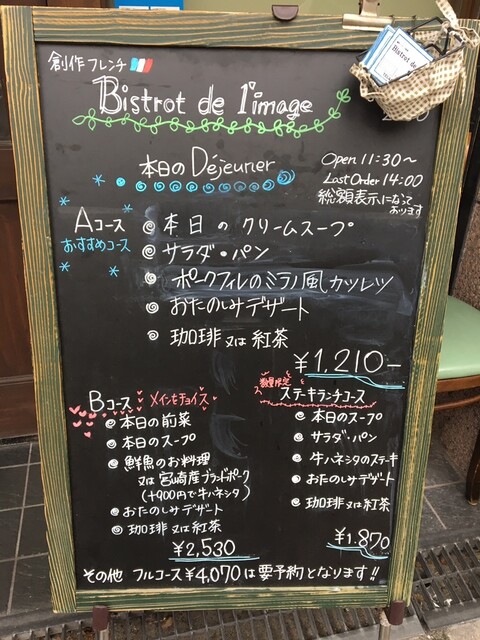 創作フレンチ
Bistrot de l'image
Bistrot de
本日のDéjeuner
Open 11:30〜
Last Order 14:00
総額表示になって
おります
Aコース
おすすめコース
本日のクリームスープ
サラダ・パン
ポークフィレのミラノ風カツレツ
おたのしみデザート
珈琲又は紅茶
¥1,210-
Bコース
メインをチョイス
本日の前菜
本日のスープ
鮮魚のお料理
又は宮崎産ブランドポーク
(+900円で牛ハネシタ)
おたのしみデザート
珈琲又は紅茶
¥2,530
数量限定
ステーキランチコース
本日のスープ
サラダ・パン
牛ハネシタのステーキ
おたのしみデザート
珈琲又は紅茶
¥1,870
その他 フルコース¥4,070は要予約となります!!